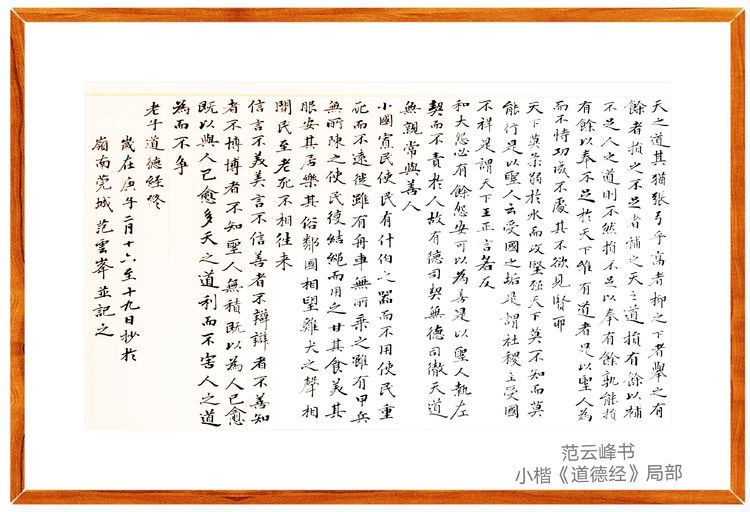 天之道其猶張弓乎高者抑之下者舉之有
餘者損之不足者補之天之道損有餘以補
不足人之道則不然損不足以奉有餘孰能損
有餘以奉不足於天下唯有道者是以聖人為
而不恃功成不處其不欲見賢耶
天下莫柔弱於水而攻堅強天下莫不知而莫
能行是以聖人云受國之垢是謂社稷主受國
不祥是謂天下王正言若反
和大怨必有餘怨安可以為善是以聖人執左
契而不責於人故有德司契無德司徹天道
無親常與善人
小國寡民使民有什伯之器而不用使民重
死而不遠徙雖有舟車無所乘之雖有甲兵
無所陳之使民復結繩而用之甘其食美其
服安其居樂其俗鄰國相望雞犬之聲相
聞民至老死不相往來
信言不美美言不信善者不辯辯者不善知
者不博博者不知聖人無積既以為人已愈
既以與人已愈多天之道利而不害人之道
為而不爭
老子道德經終
歲在庚子二月十六至十九日抄於
嶺南莞城范雲峯並記之
范云峰书
小楷《道德经》局部